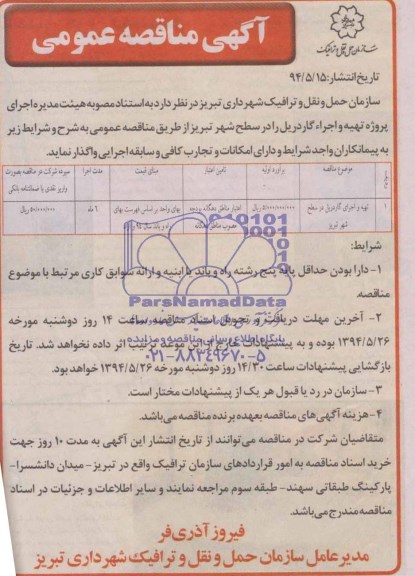 آگهی مناقصه عمومی
سازمان حمل و نقل و ترافیک
تاریخ انتشار: ۹۴/۵/۱۵
سازمان حمل و نقل و ترافیک شهرداری تبریز در نظر دارد به استناد مصوبه هیئت مدیره اجرای
پروژه تهیه و اجراء گاردریل را در سطح شهر تبریز از طریق مناقصه عمومی به شرح و شرایط زیر
به پیمانکاران واجد شرایط و دارای امکانات و تجارب کافی و سابقه اجرایی واگذار نماید.
موضوع مناقصه برآورد اولیه تامین اعتبار مبنای قیمت مدت اجرا سپرده شرکت در مناقصه بصورت
واریز نقدی یا ضمانتنامه بانکی
۱ تهیه و اجرای گاردریل در سطح
شهر تبریز
اعتبار مناطق دهگانه بودجه
مصوب مناطق دهگانه
بهای واحد بر اساس فهرست بهای
راه و باند سال ۹۴
۶ ماه
شرایط:
۱- دارا بودن حداقل پایه پنج رشته راه و باند یا ابنیه و ارائه سوابق کاری مرتبط با موضوع
مناقصه
۲- آخرین مهلت دریافت و تحویل اسناد مناقصه ساعت ۱۴ روز دوشنبه مورخه
۱۳۹۴/۵/۲۶ بوده و به پیشنهادات خارج از این موعد ترتیب اثر داده نخواهد شد. تاریخ
بازگشایی پیشنهادات ساعت ۱۴/۳۰ روز دوشنبه مورخه ۱۳۹۴/۵/۲۶ خواهد بود.
۳- سازمان در رد یا قبول هر یک از پیشنهادات مختار است.
۴- هزینه آگهی های مناقصه بعهده برنده مناقصه می‌باشد.
متقاضیان شرکت در مناقصه می‌توانند از تاریخ انتشار این آگهی به مدت ۱۰ روز جهت
خرید اسناد مناقصه به امور قراردادهای سازمان ترافیک واقع در تبریز- میدان دانشسرا-
پارکینگ طبقاتی سهند- طبقه سوم مراجعه نمایند و سایر اطلاعات و جزئیات در اسناد
مناقصه مندرج می‌باشد.
فیروز آذری‌فر
مدیرعامل سازمان حمل و نقل و ترافیک شهرداری تبریز
ParsNamadData
پایگاه اطلاع رسانی مناقصه و مزایده
۰۲۱-۸۸۳۴۹۶۷۰-۵